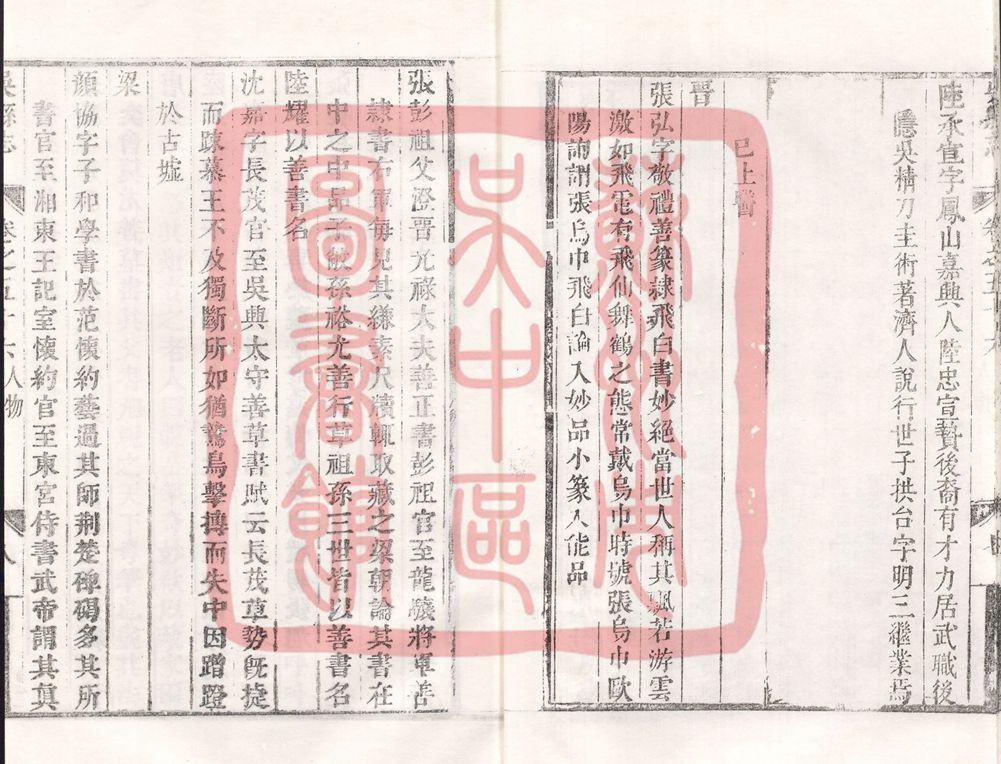 陸承宣字鳳山嘉興人陸忠宣贄後裔有才力居武職後
隱吳精刀圭術著濟人說行世子拱台字明三繼業焉
已上醫
晉
張弘字敬禮善篆隸飛白書妙絕當世人稱其飄若游雲
激如飛電有飛仙舞鶴之態常戴烏巾時號張烏巾歐
陽詢謂張烏巾飛白論入妙品小篆入能品
張彭祖父澄晉光祿大夫善正書彭祖官至龍驤將軍善
隸書右軍每見其縑素尺牘輒取藏之梁朝論其書在
中之中品子敞孫裕尤善行草祖孫三世皆以善書名
陸耀以善書名
沈嘉字長茂官至吳興太守善草書賦云長茂草勢旣捷
而踈慕王不及獨斷所如猶鷙鳥擊搏而失中因蹭蹬
於古墟
梁
顏協字子和學書於范懷約藝過其師荆楚碑碣多其所
書官至湘東王記室懷約官至東宮侍書武帝謂其眞
吳縣志 卷之五十六人物 八
蘇州市
吳中區
圖書館